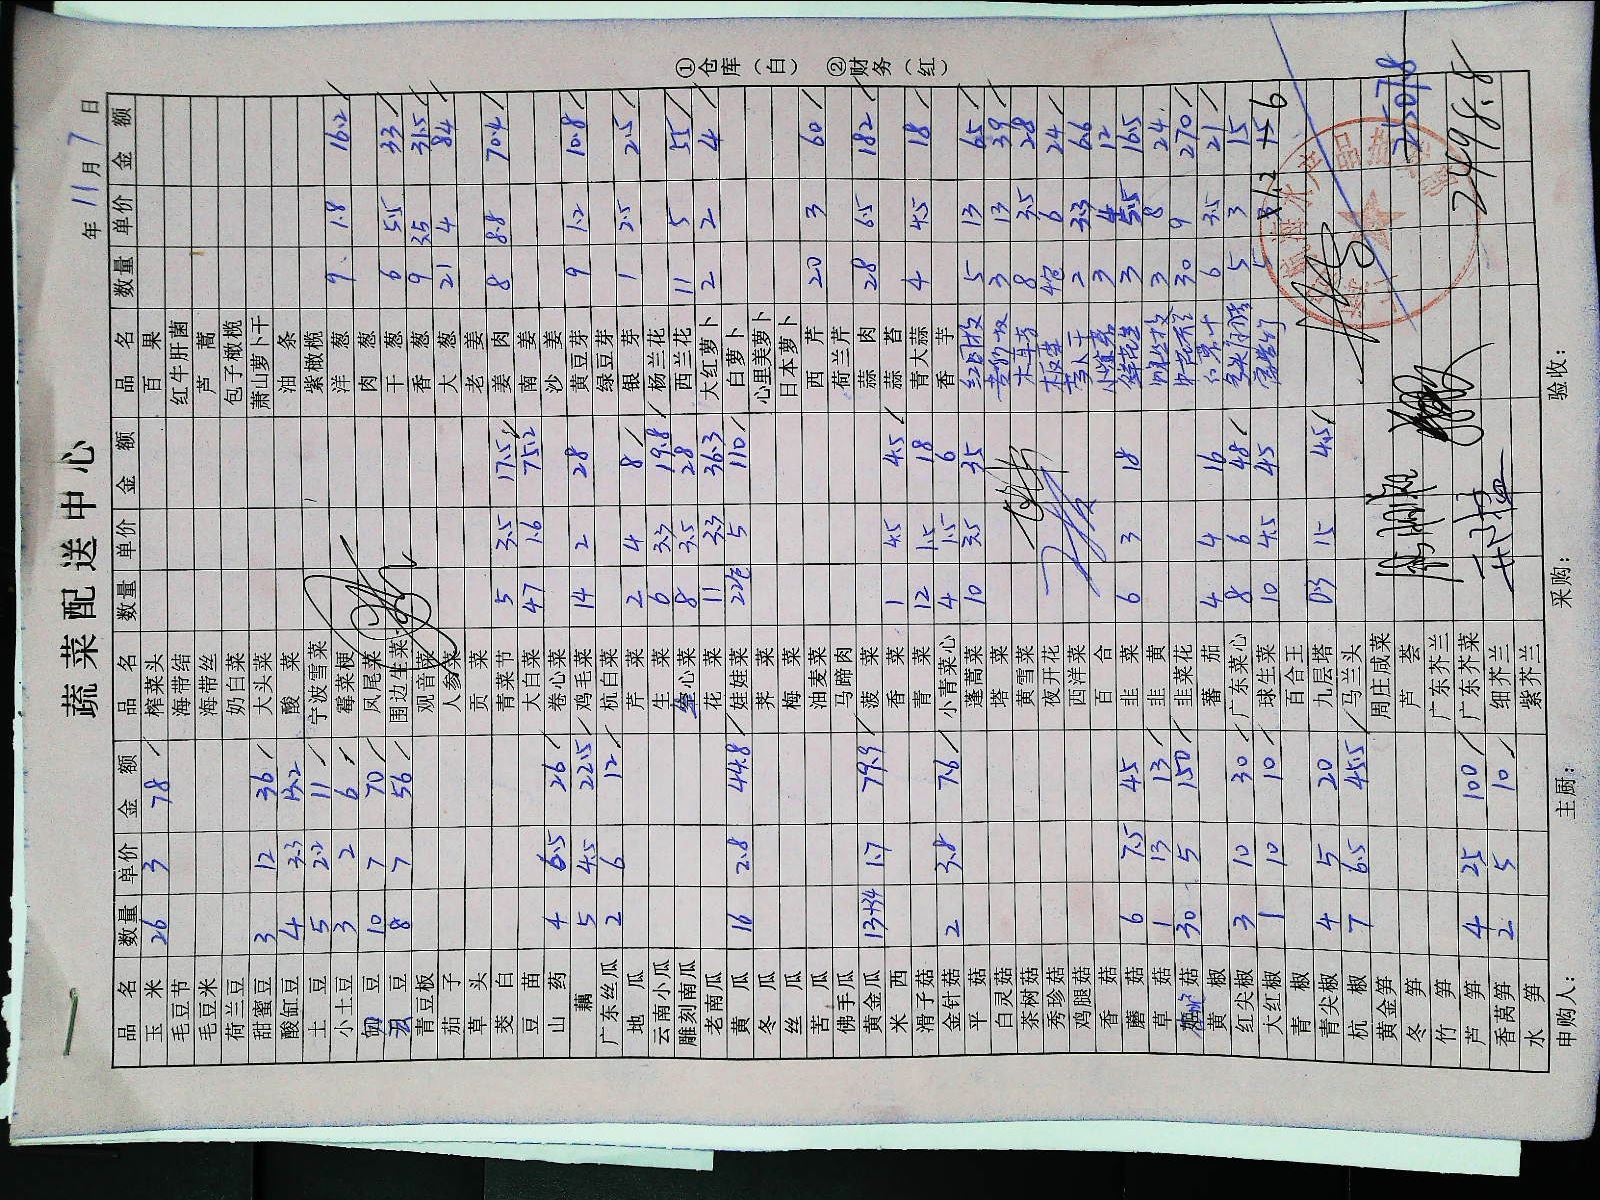 蔬菜配送中心
年 11月 7 日
品名 数量 单价 金额 品名 数量 单价 金额 品名 数量 单价 金额
玉米 26 3 78 榨菜头 百果
毛豆节 海带结 红牛肝菌
毛豆米 海带丝 芦蒿
荷兰豆 奶白菜 包子橄榄
甜蜜豆 3 12 36 大头菜 萧山萝卜干
酸缸豆 4 3.3 13.2 酸菜 油条
土豆 5 2.2 11 宁波雪菜 紫橄榄
小土豆 3 2 6 霉菜梗 洋葱 9 1.8 16.2
豆 10 7 70 凤尾菜 肉葱
豆 8 7 56 围边生菜 干葱 6 5.5 33
青豆板 观音菜 香葱 9 3.5 31.5
茄子 人参菜 大葱 21 4 84
草头 贡菜 老姜
茭白 青菜节 5 3.5 17.5 姜肉 8 8.8 70.4
豆苗 大白菜 47 1.6 75.2 南姜
山药 4 6.5 26 卷心菜 沙姜
藕 5 4.5 22.5 鸡毛菜 14 2 28 黄豆芽 9 1.2 10.8
广东丝瓜 2 6 12 杭白菜 绿豆芽
地瓜 芹菜 2 4 8 银芽 1 2.5 2.5
云南小瓜 生菜 6 3.3 19.8 杨兰花
雕刻南瓜 心菜 8 3.5 28 西兰花 11 5 55
老南瓜 花菜 11 3.3 36.3 大红萝卜 2 2 4
黄瓜 16 2.8 44.8 娃娃菜 22包 5 110 白萝卜
冬瓜 荠菜 心里美萝卜
丝瓜 梅菜 日本萝卜
苦瓜 油麦菜 西芹 20 3 60
佛手瓜 马蹄肉 荷兰芹
黄金瓜 13+34 1.7 79.9 菠菜 蒜肉 28 6.5 182
米西 香菜 1 4.5 4.5 蒜苔
滑子菇 青菜 12 1.5 18 青大蒜 4 4.5 18
金针菇 2 3.8 7.6 小青菜心 4 1.5 6 香芋
平菇 蓬蒿菜 10 3.5 35 5 13 65
白灵菇 塔菜 3 13 39
茶树菇 黄雪菜 8 3.5 28
秀珍菇 夜开花 4包 6 24
鸡腿菇 西洋菜 2 3.3 6.6
香菇 百合 3 4 12
蘑菇 6 7.5 45 韭菜 6 3 18 3 5.5 16.5
草菇 1 13 13 韭黄 3 8 24
菇 30 5 150 韭菜花 30 9 270
黄椒 蕃茄 4 4 16 6 3.5 21
红尖椒 3 10 30 广东菜心 8 6 48 5 3 15
大红椒 1 10 10 球生菜 10 4.5 45 5
青椒 百合王
青尖椒 4 5 20 九层塔 0.3 15 4.5
杭椒 7 6.5 45.5 马兰头
黄金笋 周庄咸菜
冬笋 芦荟
竹笋 广东芥兰
芦笋 4 25 100 广东芥菜 2498.8
香莴笋 2 5 10 细芥兰
水笋 紫芥兰
申购人： 主厨： 采购： 验收：
①仓库（白） ②财务（红）